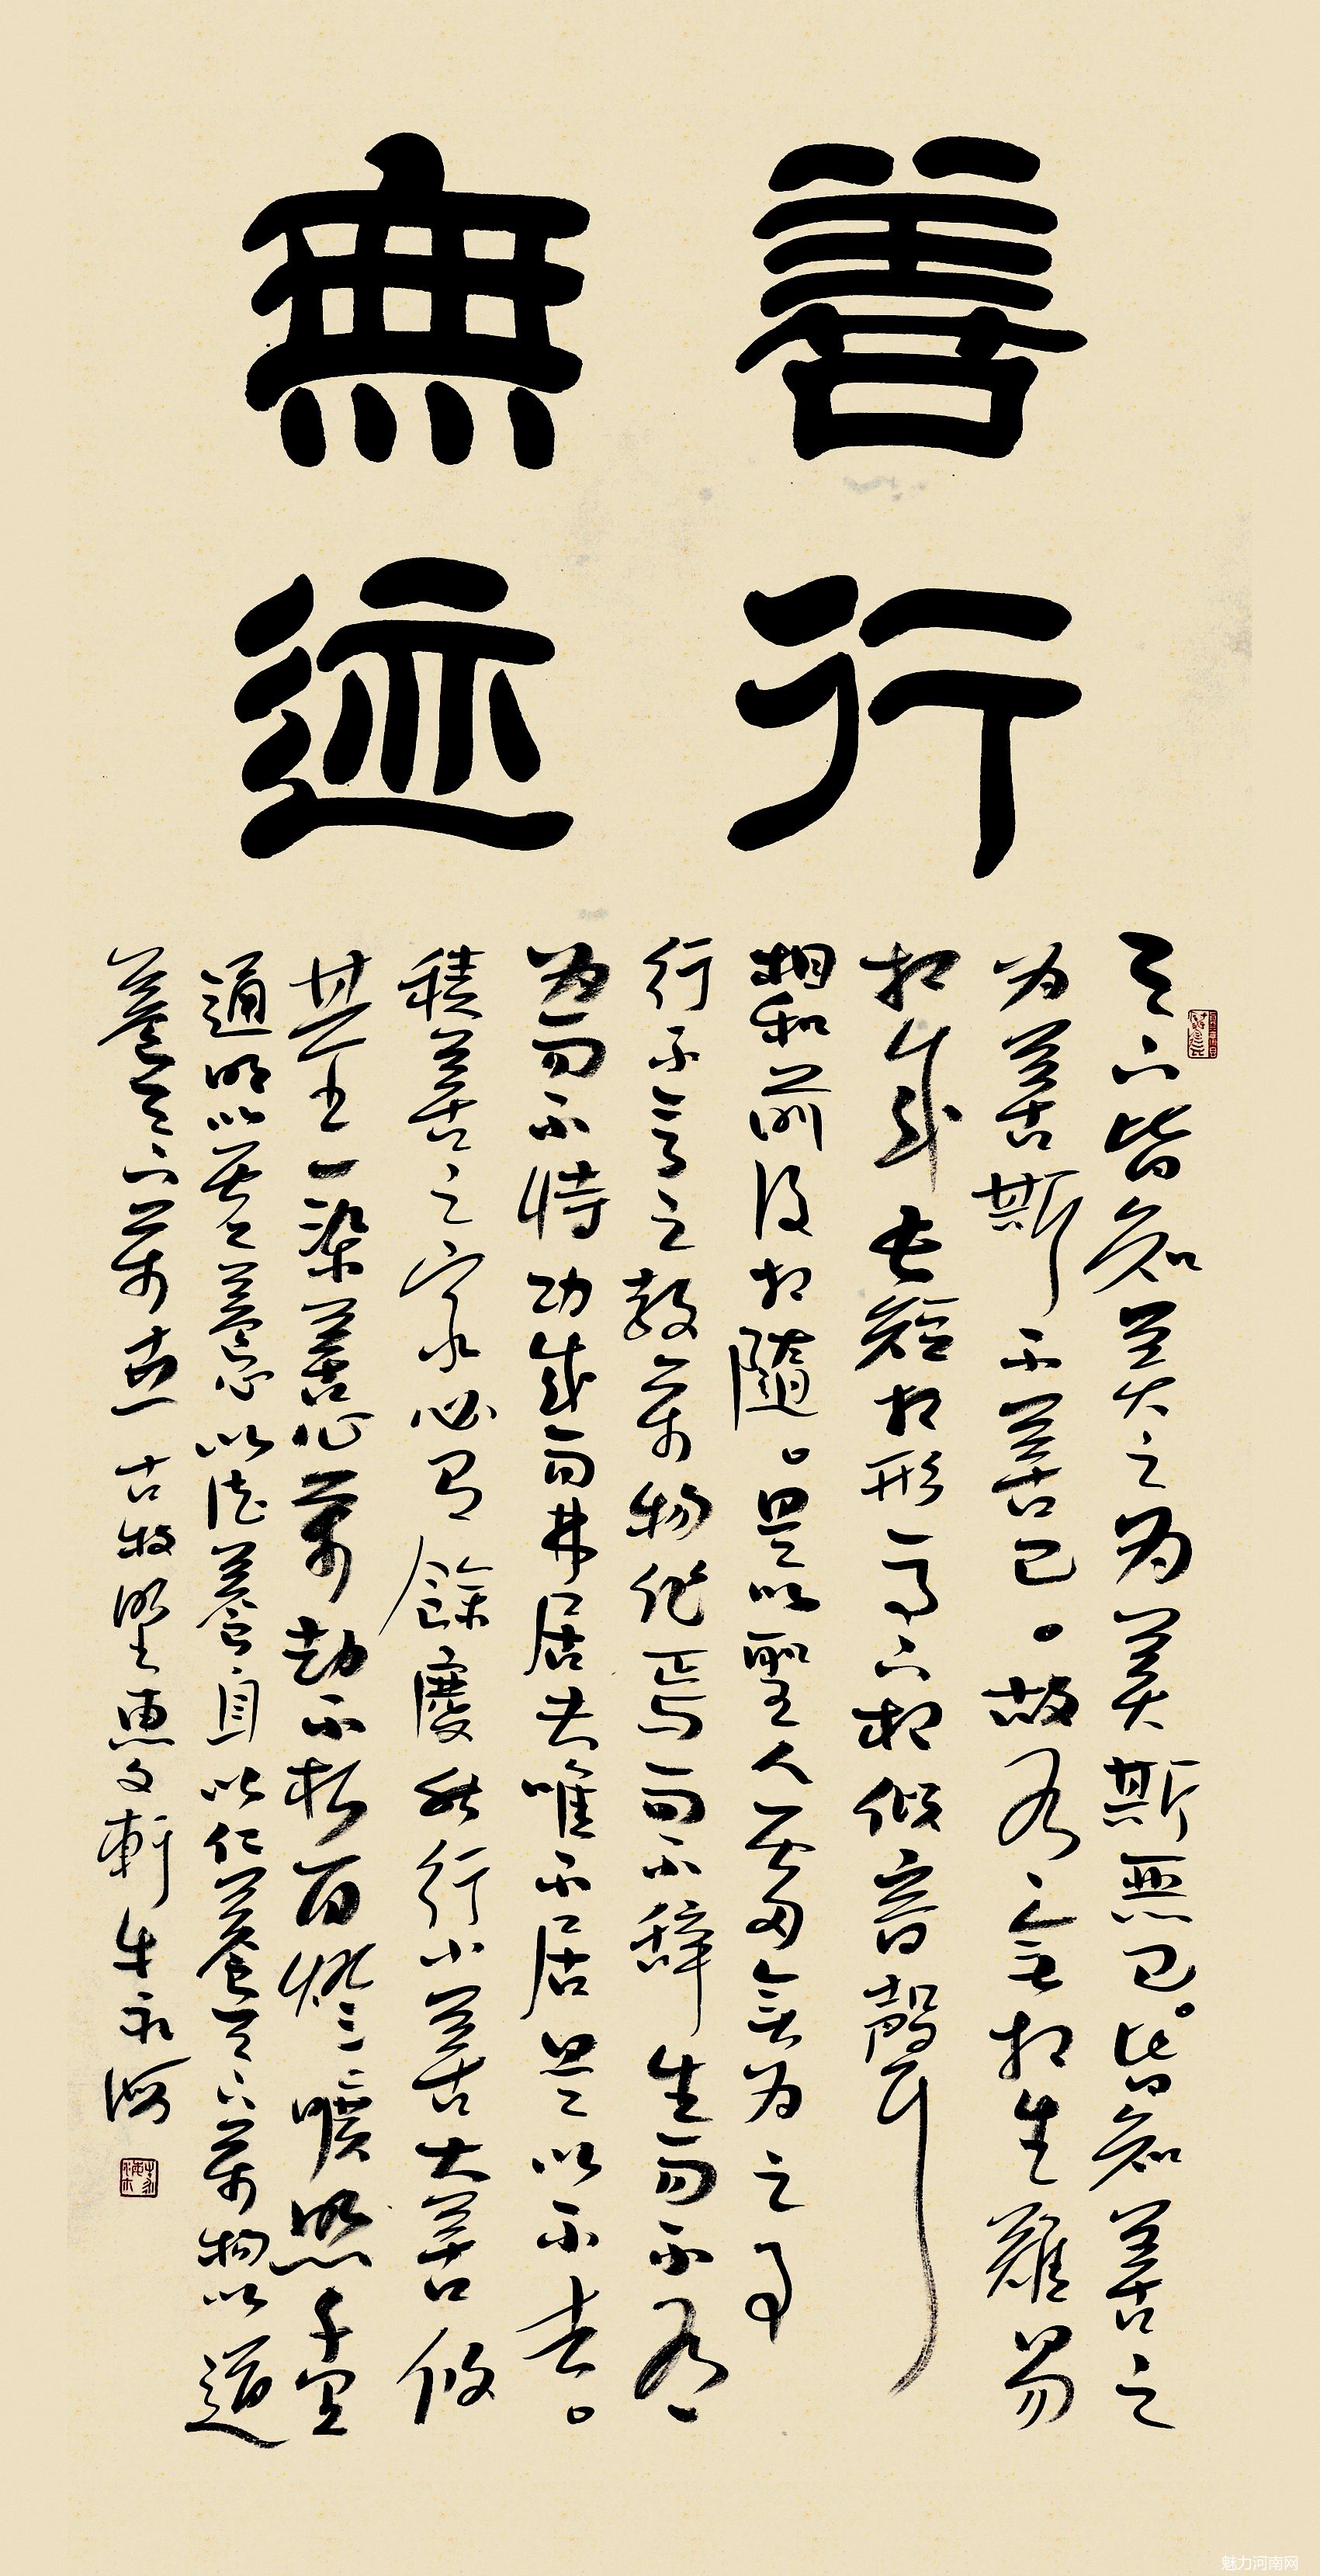 善行
無迹
天下皆知美之为美斯惡已。皆知善之
为善斯不善已。故有無相生難易
相成長短相形高下相傾音聲
相和前後相隨。是以聖人處無为之事
行不言之教萬物作焉而不辭生而不有
为而不恃功成而弗居夫唯不居是以不去。
積善之家必有餘慶能行小善大善攸
其至一染善心萬劫不朽百燈曠照千里
通明以虚養心以德養身以仁養天下萬物以道
養天下萬世 古牧野惠文軒 牛永
魅力河南网